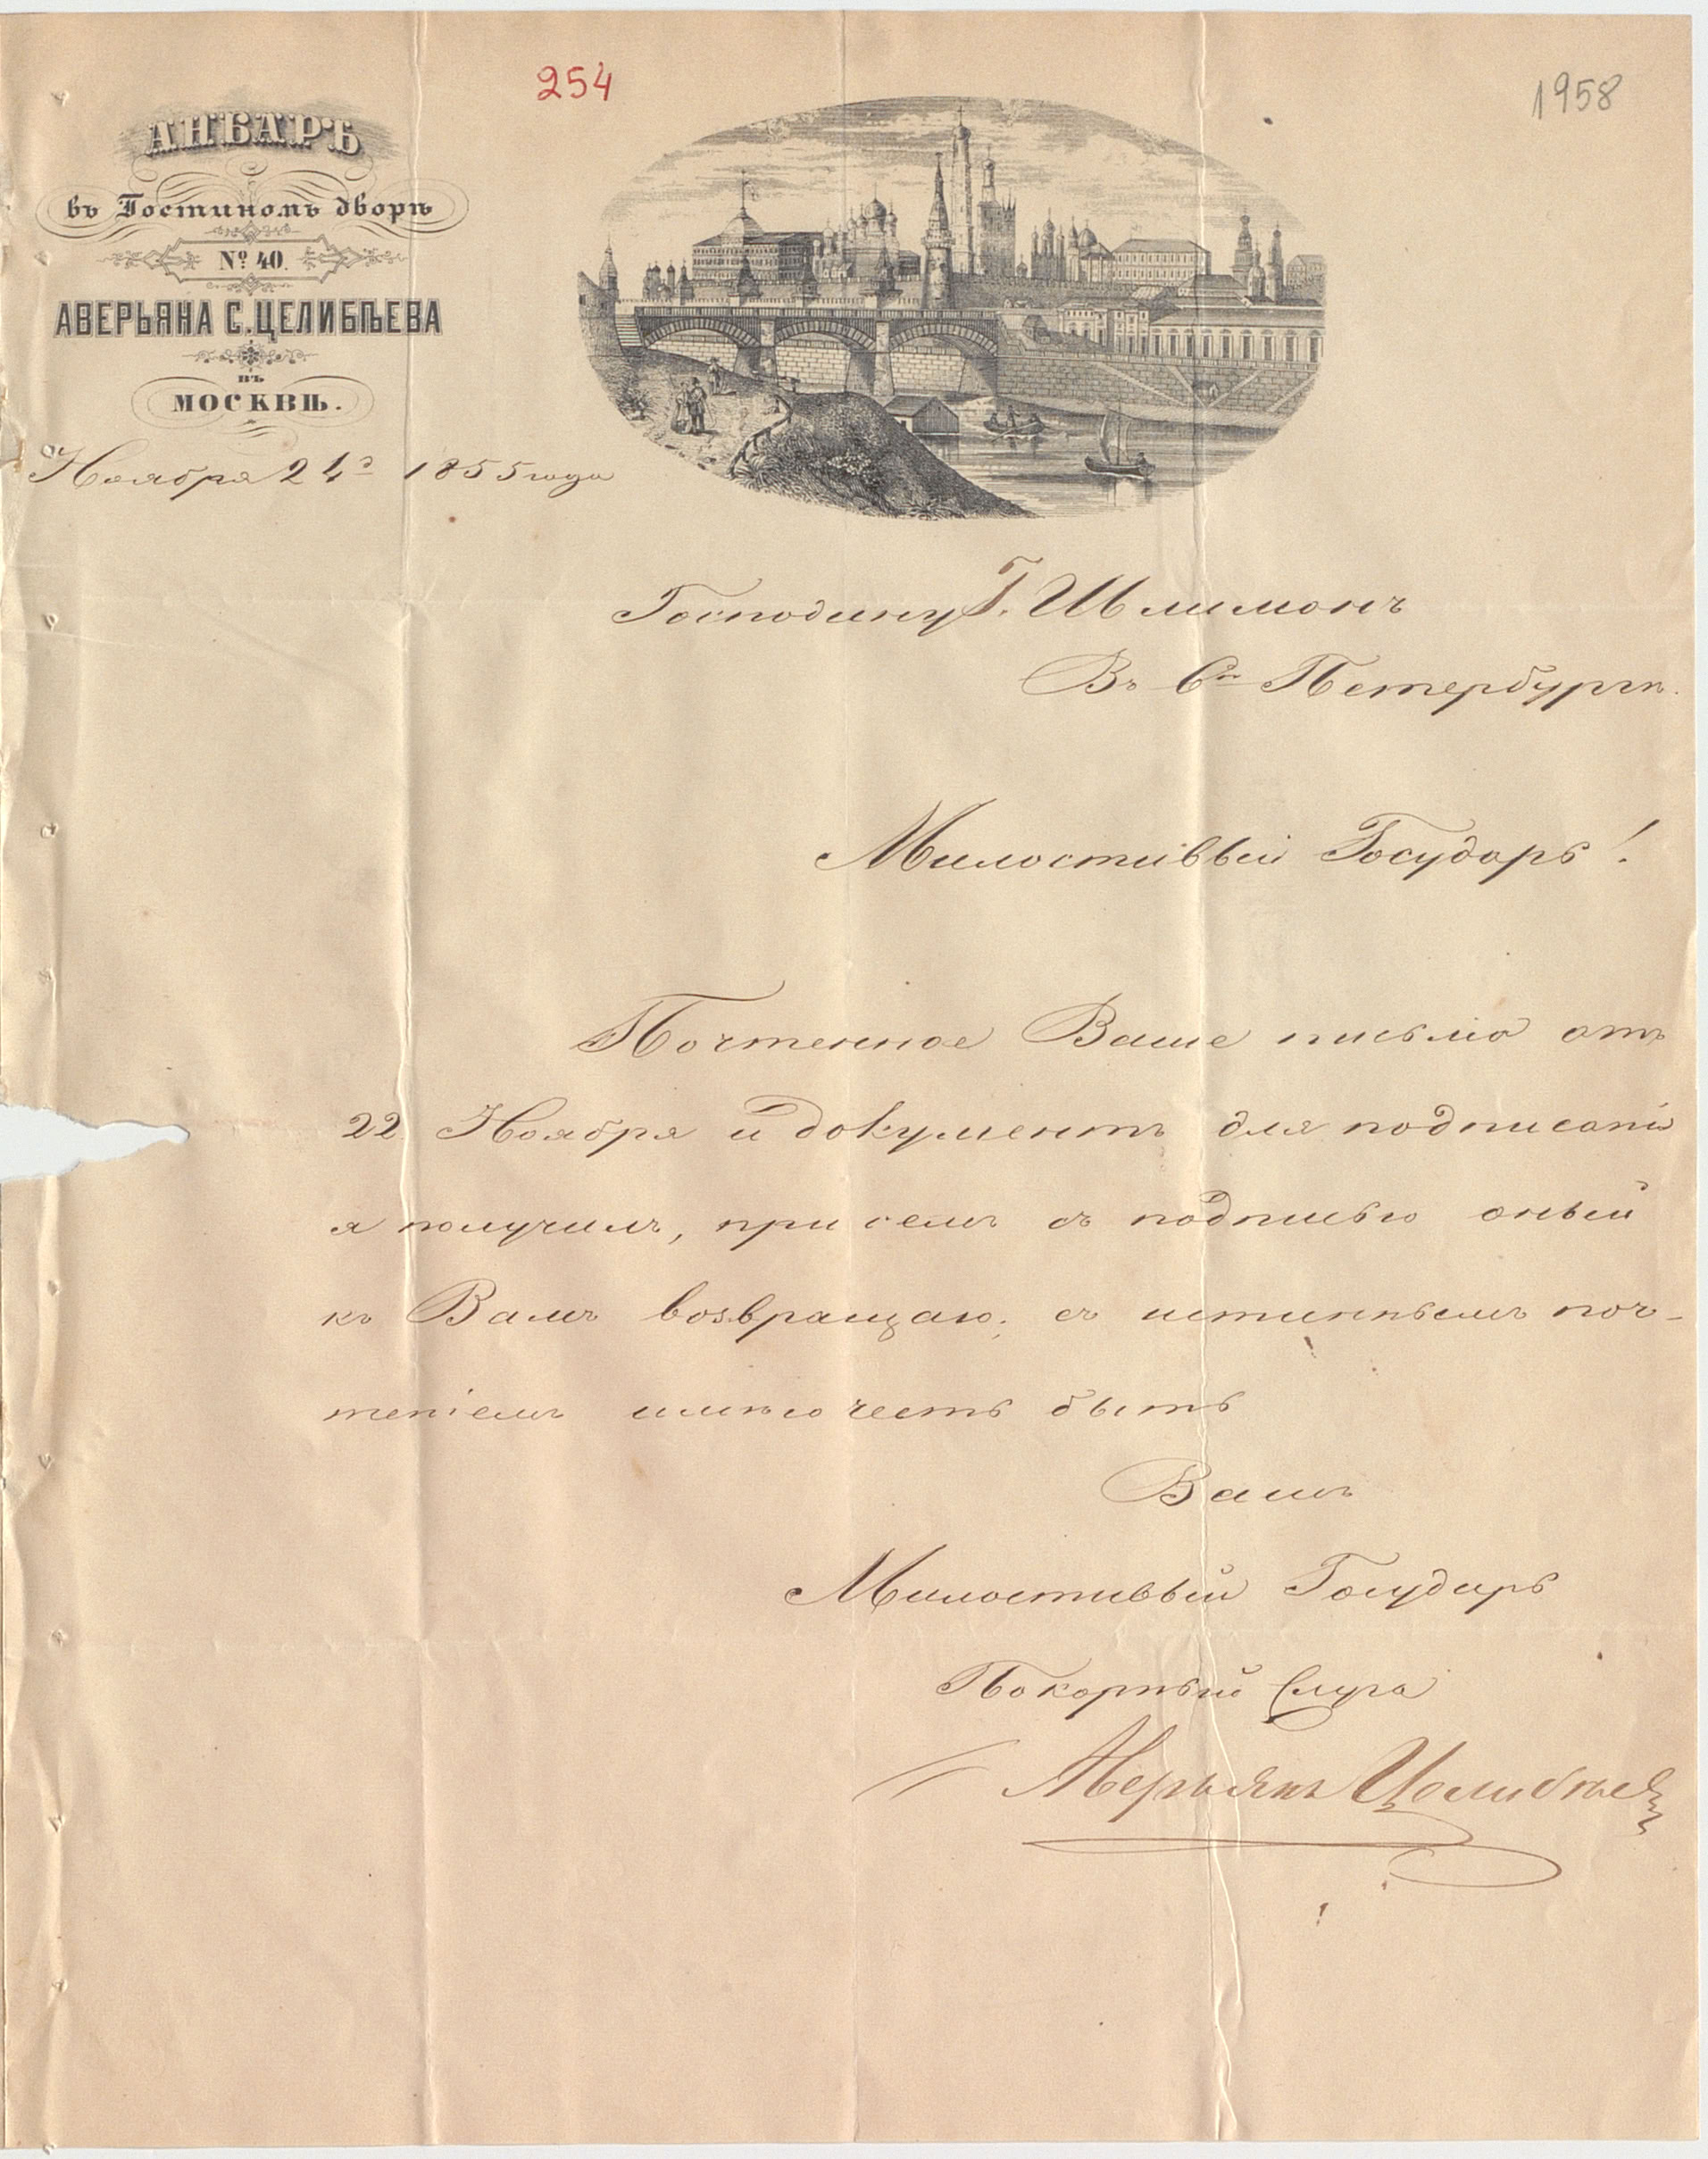 254
1958
АНБАРЪ
въ Гостиномъ дворѣ
№ 40.
АВЕРЬЯНА С. ЦЕЛИБѢЕВА
ВЪ
МОСКВѢ.
Ноября 24го 1855 года
Господину Г. Шлимонъ
Въ Ст Петербургѣ.
Милостивый Государь!
Почтенное Ваше письмо отъ
22 Ноября и документъ для подписани
я получилъ, при семъ съ подписью оный
къ Вамъ возвращаю; съ истиннымъ поч-
тенiемъ имѣю честь быть
Вашъ
Милостивый Государь
Покорный Слуга
Аверьянъ Целибѣев